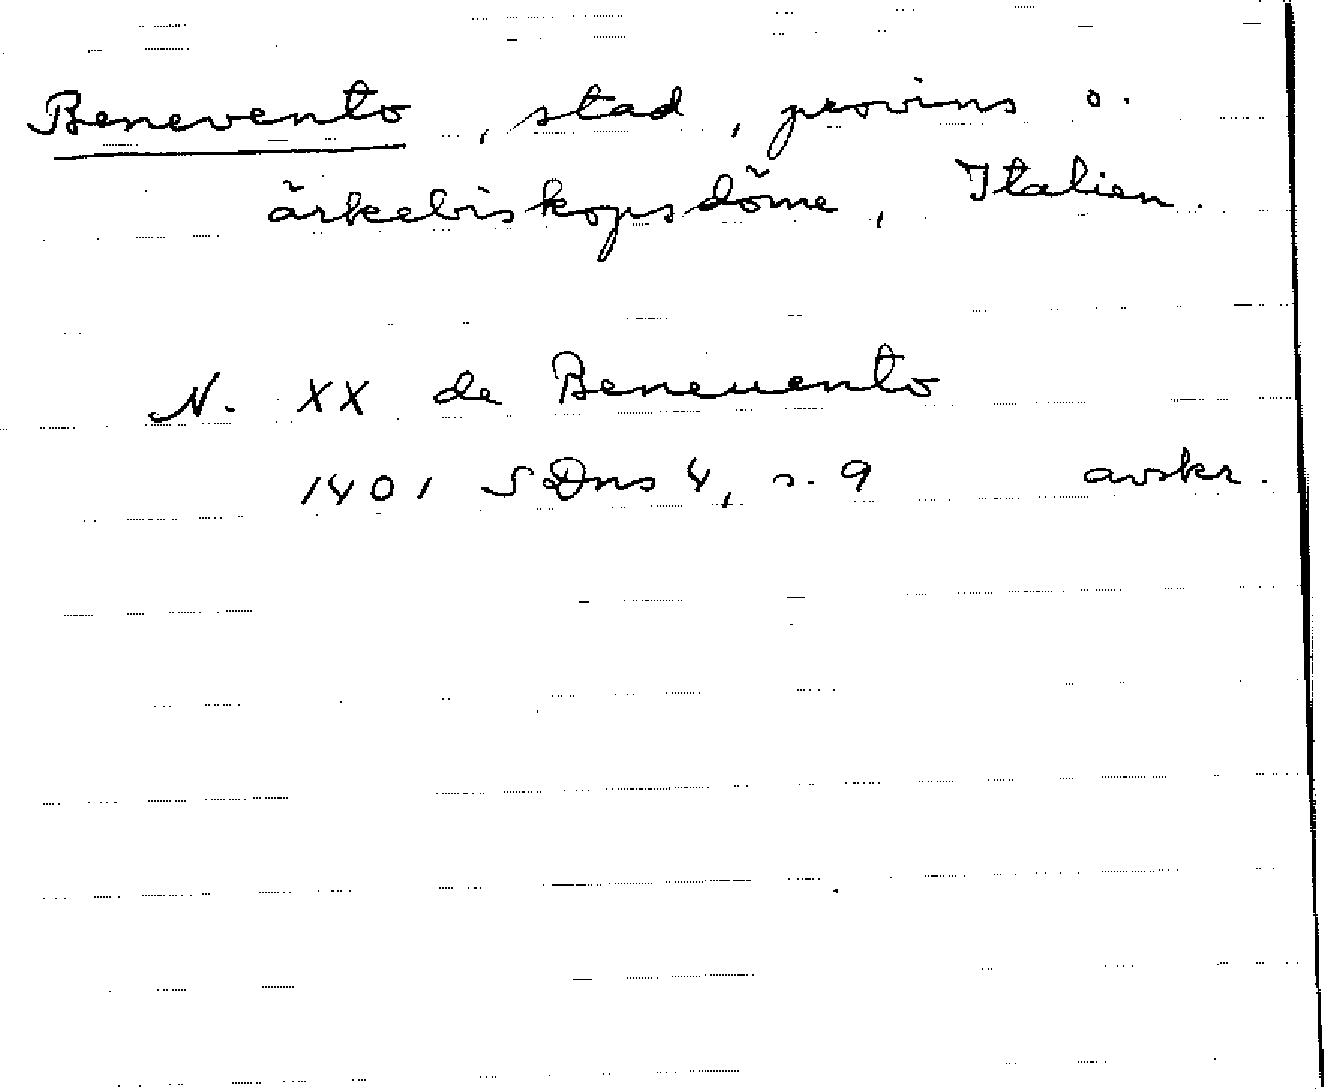 Benevento, stad, provins o.
ärkebiskopsdöme, Italien.
N. XX de Beneuento
1401 SDns 4, s. 9 avskr.